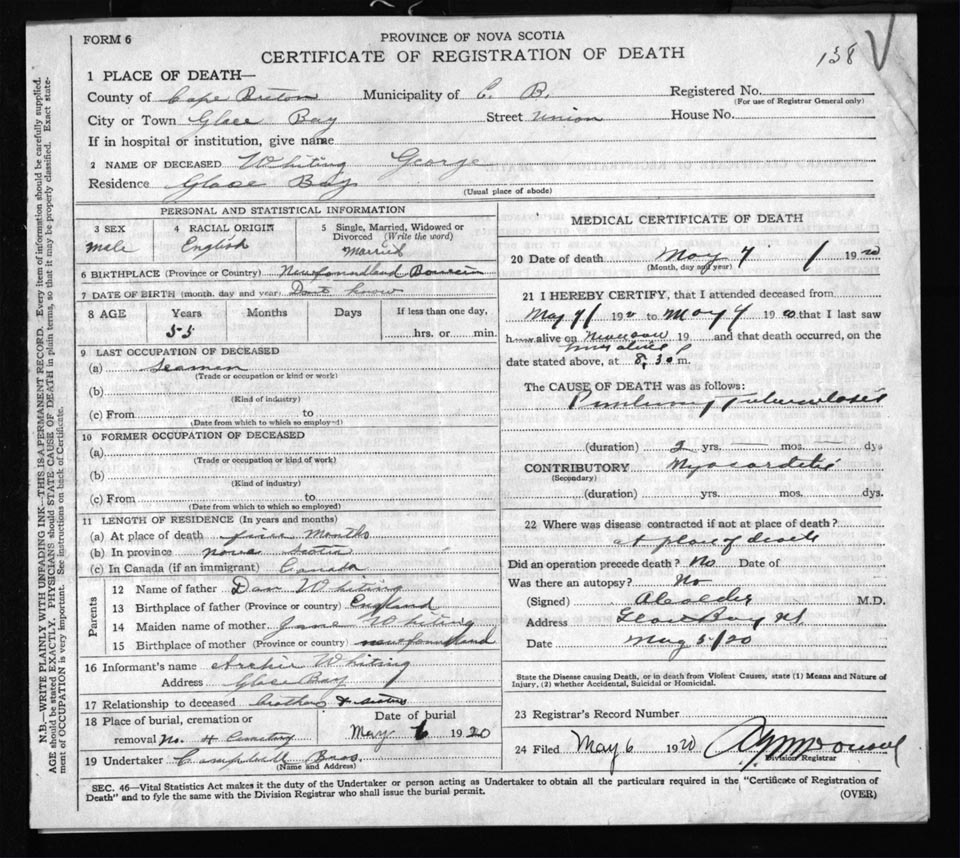 FORM 6
PROVINCE OF NOVA SCOTIA
CERTIFICATE OF REGISTRATION OF DEATH
138
1 PLACE OF DEATH—
County of Cape Breton Municipality of C. B. Registered No.
(For use of Registrar General only)
City or Town Glace Bay Street Union House No.
If in hospital or institution, give name
2 NAME OF DECEASED Whiting George
Residence Glace Bay
(Usual place of abode)
PERSONAL AND STATISTICAL INFORMATION
3 SEX 4 RACIAL ORIGIN 5 Single, Married, Widowed or Divorced (Write the word)
Male English Married
6 BIRTHPLACE (Province or Country) Newfoundland
7 DATE OF BIRTH (month, day and year) Dont know
8 AGE Years Months Days If less than one day,
55 hrs. or min.
9 LAST OCCUPATION OF DECEASED
(a) Seaman
(Trade or occupation or kind or work)
(b)
(Kind of industry)
(c) From to
(Date from which to which so employed)
10 FORMER OCCUPATION OF DECEASED
(a)
(Trade or occupation or kind of work)
(b)
(Kind of industry)
(c) From to
(Date from which to which so employed)
11 LENGTH OF RESIDENCE (In years and months)
(a) At place of death Months
(b) In province Nova Scotia
(c) In Canada (if an immigrant) Canada
Parents
12 Name of father Dan Whiting
13 Birthplace of father (Province or country) England
14 Maiden name of mother Jane Whiting
15 Birthplace of mother (Province or country) Newfoundland
16 Informant's name Archie Whiting
Address Glace Bay
17 Relationship to deceased brothers & sisters
18 Place of burial, cremation or removal No. 4 Cemetery
Date of burial May 6 1920
19 Undertaker Campbell Bros.
(Name and Address)
MEDICAL CERTIFICATE OF DEATH
20 Date of death May 4 1920
(Month, day and year)
21 I HEREBY CERTIFY, that I attended deceased from
May 4 1920 to May 4 1920 that I last saw
h alive on 19 and that death occurred, on the
date stated above, at 8.30 m.
The CAUSE OF DEATH was as follows:
Pulmonary Tuberculosis
(duration) 2 yrs. mos. dys
CONTRIBUTORY Myocarditis
(Secondary)
(duration) yrs. mos. dys.
22 Where was disease contracted if not at place of death?
at place of death
Did an operation precede death? No Date of
Was there an autopsy? No
(Signed) M.D.
Address Glace Bay NS
Date May 5/20
State the Disease causing Death, or in death from Violent Causes, state (1) Means and Nature of Injury, (2) whether Accidental, Suicidal or Homicidal.
23 Registrar's Record Number
24 Filed May 6 1920
Division Registrar
SEC. 46—Vital Statistics Act makes it the duty of the Undertaker or person acting as Undertaker to obtain all the particulars required in the "Certificate of Registration of
Death" and to fyle the same with the Division Registrar who shall issue the burial permit. (OVER)
N.B.—WRITE PLAINLY WITH UNFADING INK—THIS IS A PERMANENT RECORD. Every item of information should be carefully supplied.
AGE should be stated EXACTLY. PHYSICIANS should STATE CAUSE OF DEATH in plain terms, so that it may be properly classified. Exact state-
ment of OCCUPATION is very important. See instructions on back of Certificate.